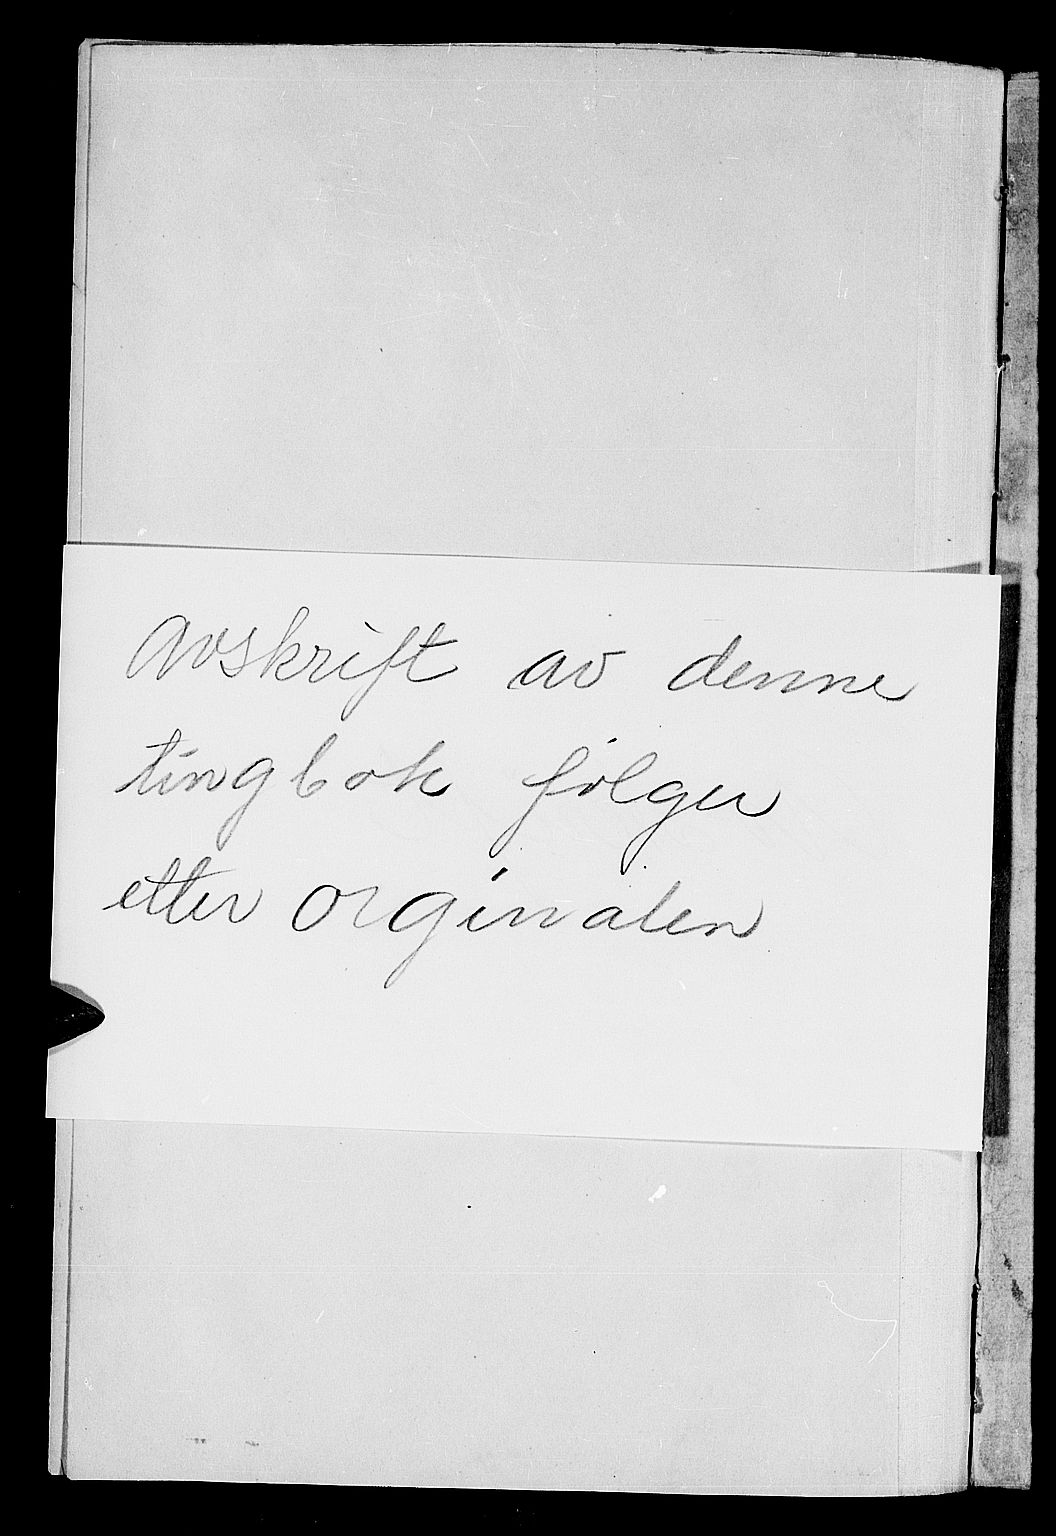 Avskrift av denne
tingbok følger
etter orginalen